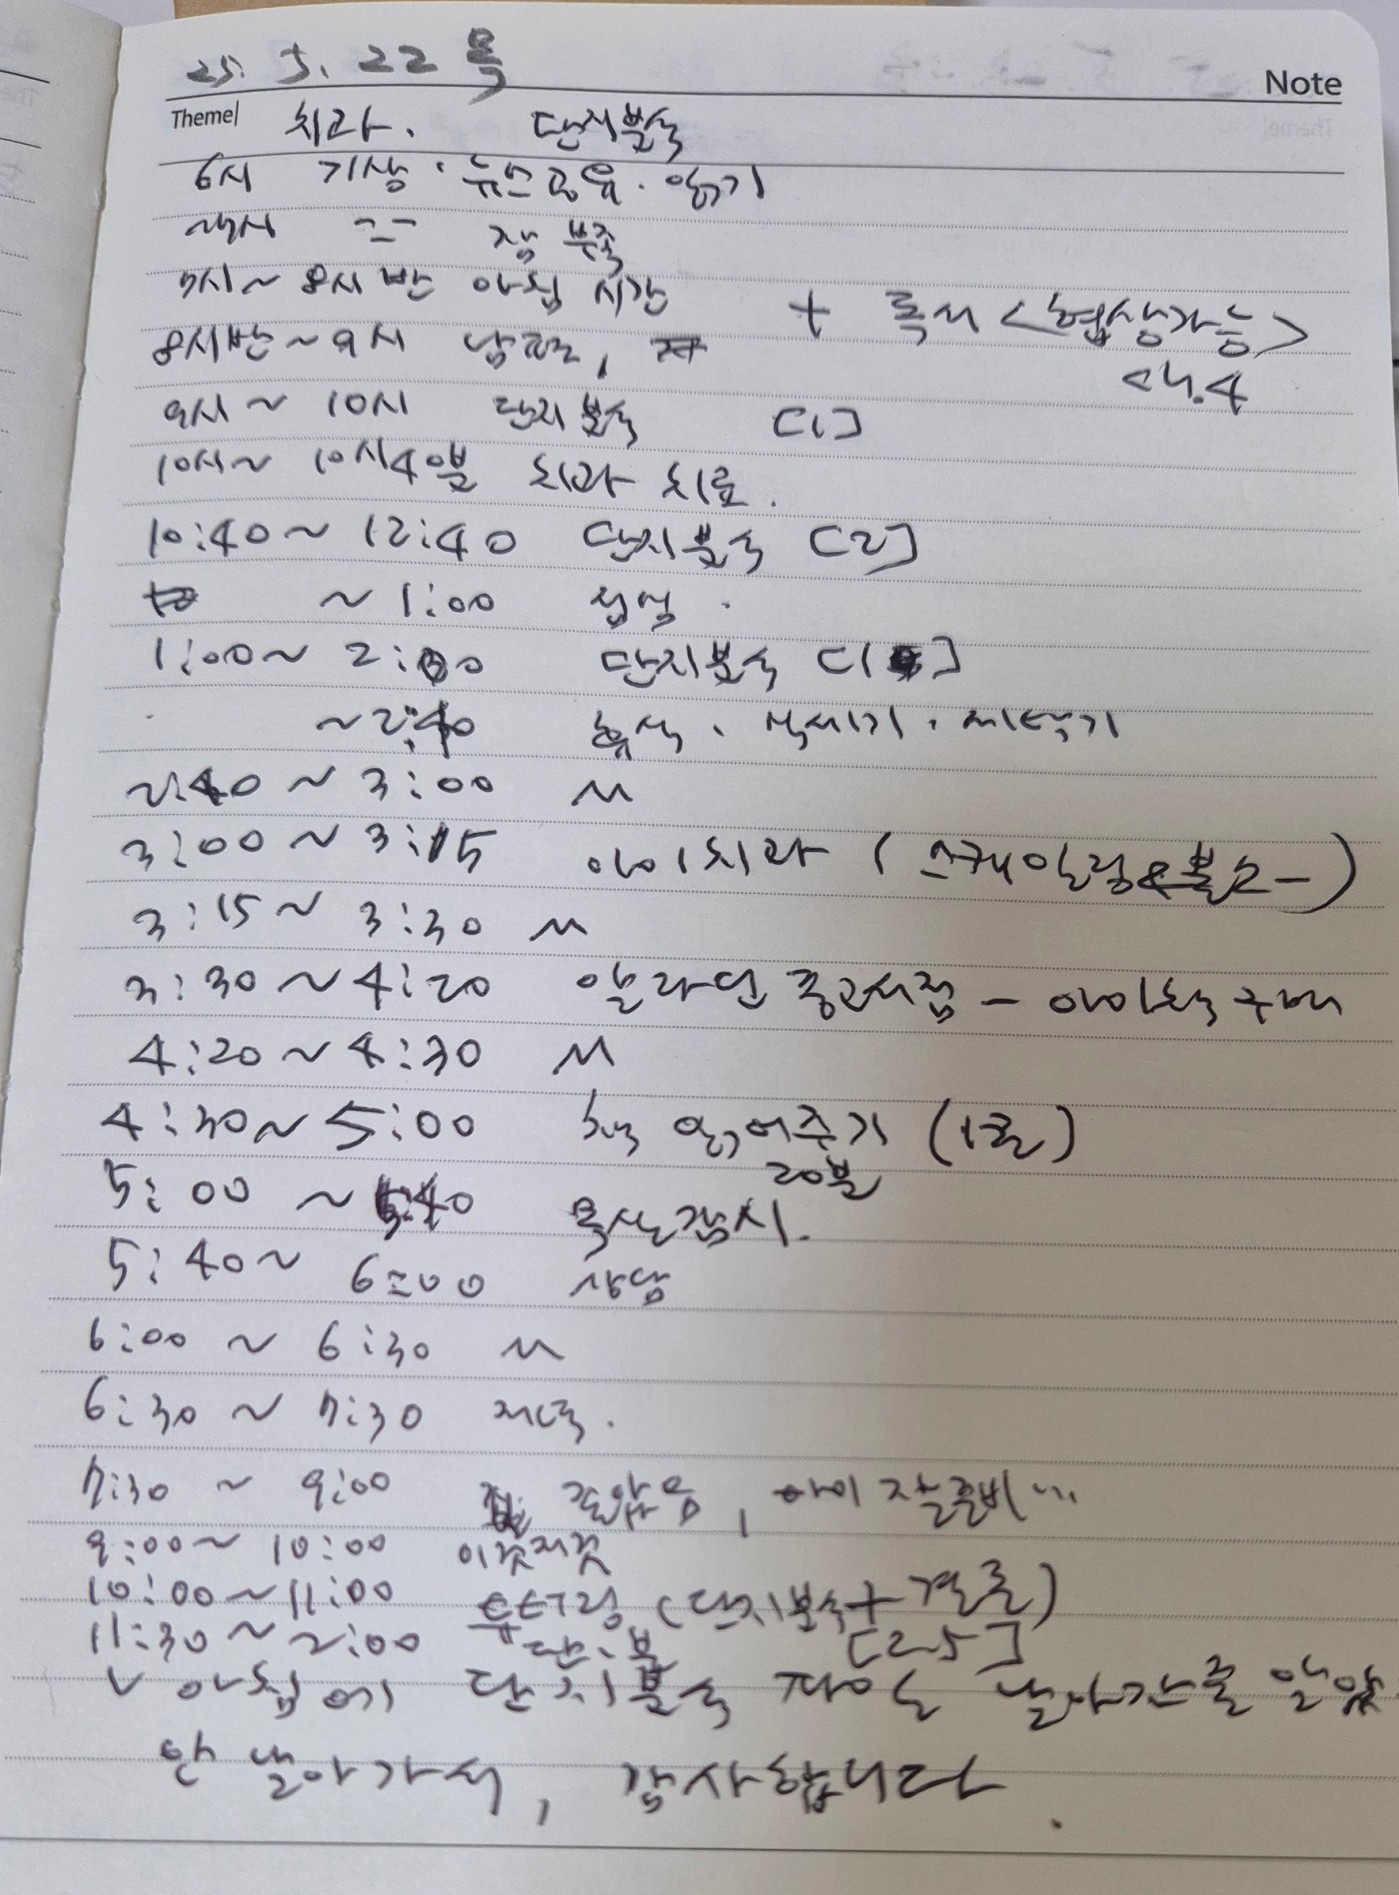 25. 5. 22 목
Note
Theme 치과. 단지분석
6시 기상. 뉴스공유. 읽기
~7시 잠 부족
7시~8시반 아침 시간
+ 독서 <협상가능>
8시반~9시 남편,
ch.4
9시~10시 단지분석 [1]
10시~10시40분 치과 치료.
10:40~12:40 단지분석 [2]
~1:00 점심.
1:00~2:00 단지분석 [1]
~2:40 휴식. 식세기. 세탁기
2:40~3:00 M
3:00~3:15 아이치과 (스케일링&불소-)
3:15~3:30 M
3:30~4:20 알라딘 중고서점 - 아이책 구매
4:20~4:30 M
4:30~5:00 책 읽어주기 (1권)
20분
5:00~5:40 독산감시.
5:40~6:00 상담
6:00~6:30 M
6:30~7:30 저녁.
7:30~9:00 졸았음, 아이 잘준비...
9:00~10:00 이것저것
10:00~11:00 튜터링 (단지분석+결론)
11:30~2:00 단.분 [2.5]
V 아침에 단지분석 파일 날아간줄 알았
안 날아가서, 감사합니다.